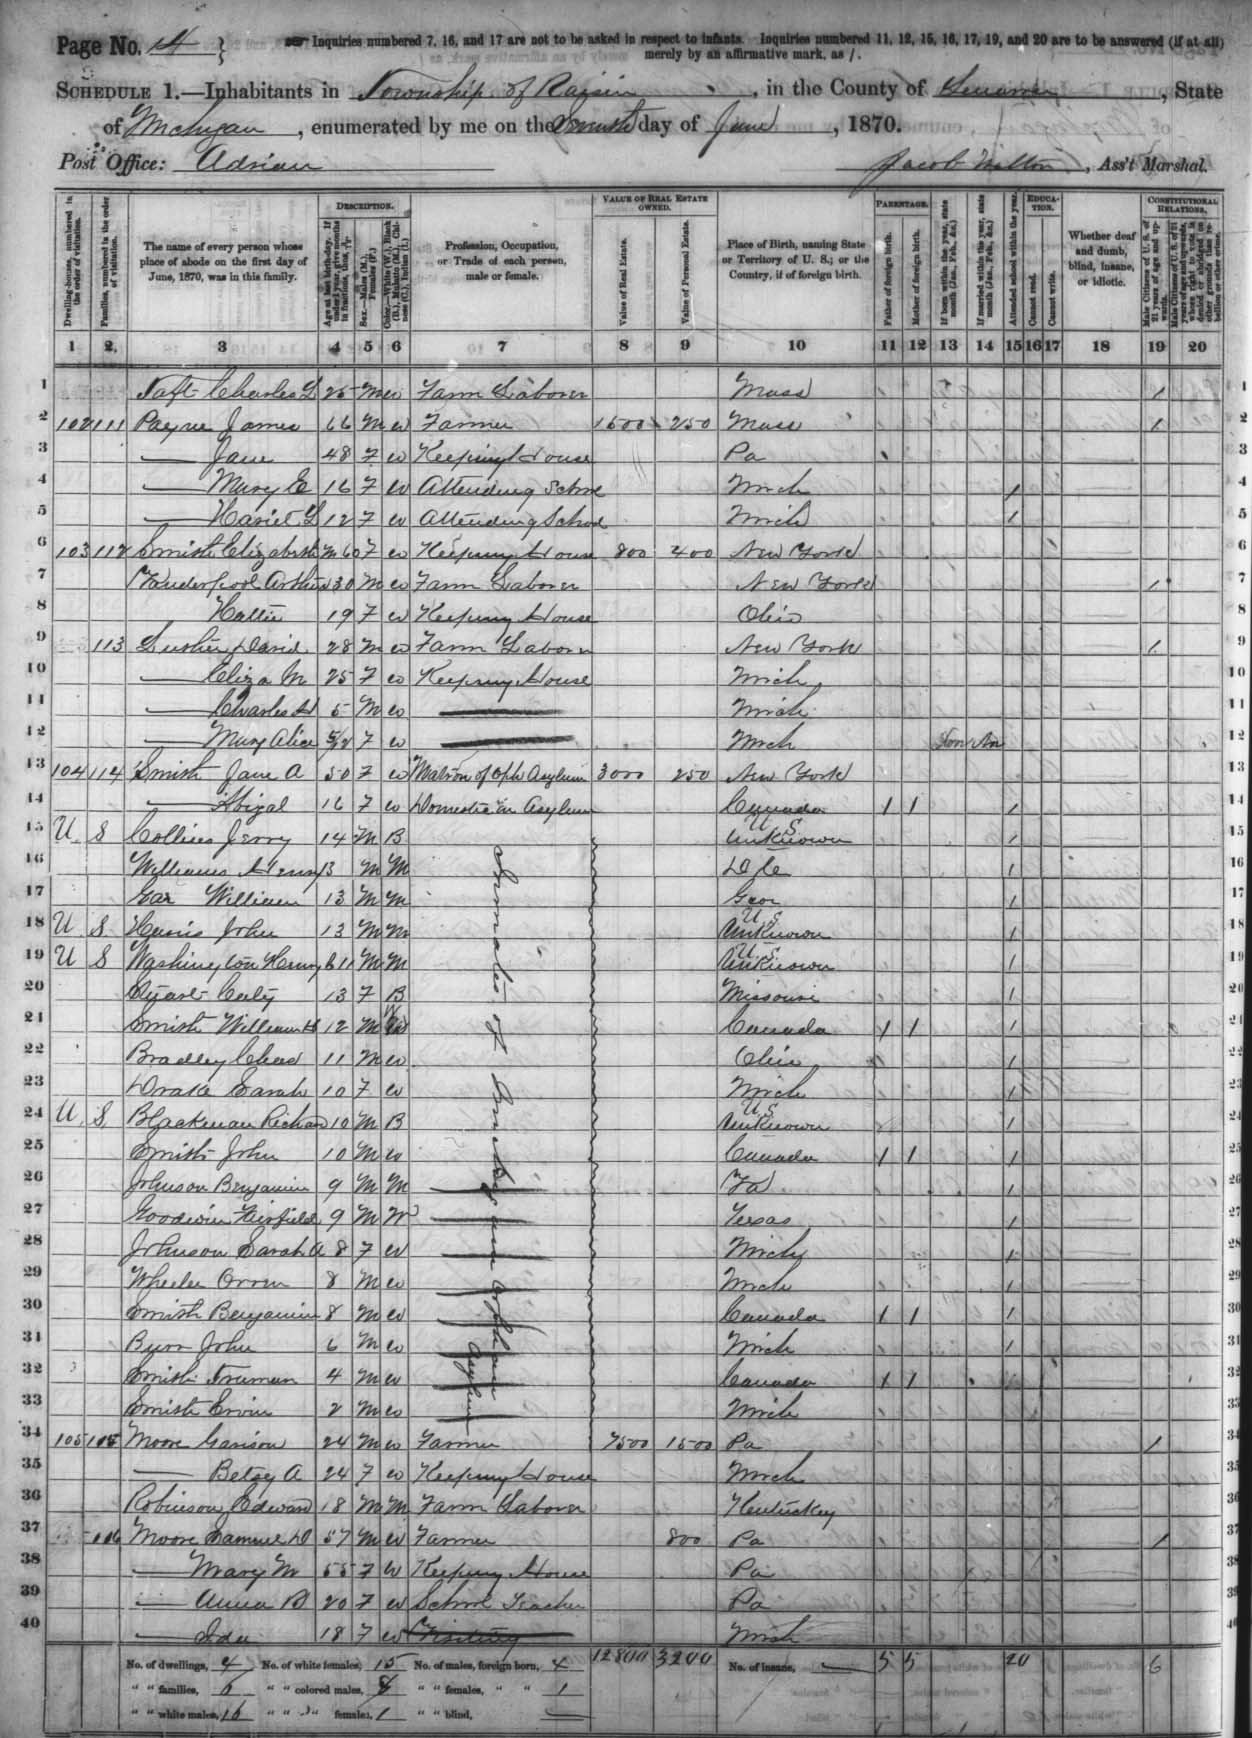 Page No. 14 } Inquiries numbered 7, 16, and 17 are not to be asked in respect to infants. Inquiries numbered 11, 12, 15, 16, 17, 19, and 20 are to be answered (if at all)
merely by an affirmative mark, as /.
SCHEDULE 1.—Inhabitants in Township of Raisin, in the County of Lenawee, State
of Michigan, enumerated by me on the day of June, 1870.
Post Office: Adrian Jacob, Ass't Marshal.
DESCRIPTION. VALUE OF REAL ESTATE OWNED. PARENTAGE. EDUCATION. CONSTITUTIONAL RELATIONS.
Dwelling-houses, numbered in the order of visitation.
Families, numbered in the order of visitation.
The name of every person whose place of abode on the first day of June, 1870, was in this family.
Age at last birth-day. If under 1 year, give months in fractions, thus,
Sex.—Males (M.), Females (F.)
Color.—White (W.), Black (B.), Mulatto (M.), Chinese (C.), Indian (I.)
Profession, Occupation, or Trade of each person, male or female.
Value of Real Estate.
Value of Personal Estate.
Place of Birth, naming State or Territory of U. S.; or the Country, if of foreign birth.
Father of foreign birth.
Mother of foreign birth.
If born within the year, state month (Jan., Feb., &c.)
If married within the year, state month (Jan., Feb., &c.)
Attended school within the year.
Cannot read.
Cannot write.
Whether deaf and dumb, blind, insane, or idiotic.
Male Citizens of U. S. of 21 years of age and upwards.
Male Citizens of U. S. of 21 years of age and upwards, whose right to vote is denied or abridged on other grounds than rebellion or other crime.
1 2 3 4 5 6 7 8 9 10 11 12 13 14 15 16 17 18 19 20
1 Taft Charles L 25 M W Farm Laborer Mass 1 1
2 102 111 Payne James 66 M W Farmer 1600 250 Mass 1 2
3 — Jane 48 F W Keeping House Pa 3
4 — Mary E 16 F W Attending School Mich 1 4
5 — Hariet L 12 F W Attending School Mich 1 5
6 103 112 Smith Elizabeth M 60 F W Keeping House 800 400 New York 6
7 Vanderpool Arthur 30 M W Farm Laborer New York 1 7
8 Hattie 19 F W Keeping House Ohio 8
9 113 David 28 M W Farm Laborer New York 1 9
10 — Eliza M 25 F W Keeping House Mich 10
11 — Charles H 5 M W — Mich 11
12 — Mary Alice 5/12 F W — Mich 12
13 104 114 Smith Jane A 50 F W Matron of Oph Asylum 3000 250 New York 13
14 — Abigal 16 F W Domestic in Asylum Canada 1 1 1 14
15 U S Collins Jerry 14 M B U S Unknown 1
16 Williams Henry 13 M M 1 16
17 William 13 M M Geor 1 17
18 U S Harris John 13 M M U S Unknown 1 18
19 U S Washington Henry B 11 M M U S Unknown 1 19
20 13 F B Missouri 1 20
21 Smith William H 12 M W Canada 1 1 1 21
22 Bradley 11 M W Ohio 1 22
23 Drake Sarah 10 F W Mich 1 23
24 U S Blackman Richard 10 M B U S Unknown 1 24
25 Smith John 10 M W Canada 1 1 1 25
26 Johnson Benjamin 9 M M 1 26
27 Goodwin Fairfield 9 M W Texas 1 27
28 Johnson Sarah A 8 F W Mich 1 28
29 Wheeler Orrin 8 M W Mich 1 29
30 Smith Benjamin 8 M W Canada 1 1 1 30
31 Burr John 6 M W Mich 1 31
32 Smith Truman 4 M W Canada 1 1 1 32
33 Smith Ervin 2 M W Mich 33
Inmates of an Orphan Asylum
34 105 115 Moore Garison 24 M W Farmer 7500 1500 Pa 1 34
35 — Betsy A 24 F W Keeping House Mich 35
36 Robinson Edward 18 M M Farm Laborer Kentuckey 36
37 116 Moore Samuel D 57 M W Farmer 800 Pa 1 37
38 — Mary M 55 F W Keeping House Pa 38
39 — Anna B 20 F W School Teacher Pa 39
40 — Ida 18 F W Visiting Mich
No. of dwellings, 4 No. of white females, 15 No. of males, foreign born, 4 12800 3200 No. of insane, — 5 5 20 6
" " families, 6 " " colored males, " " females, " " 1
" " white males, 16 " " " females, 1 " " blind, —